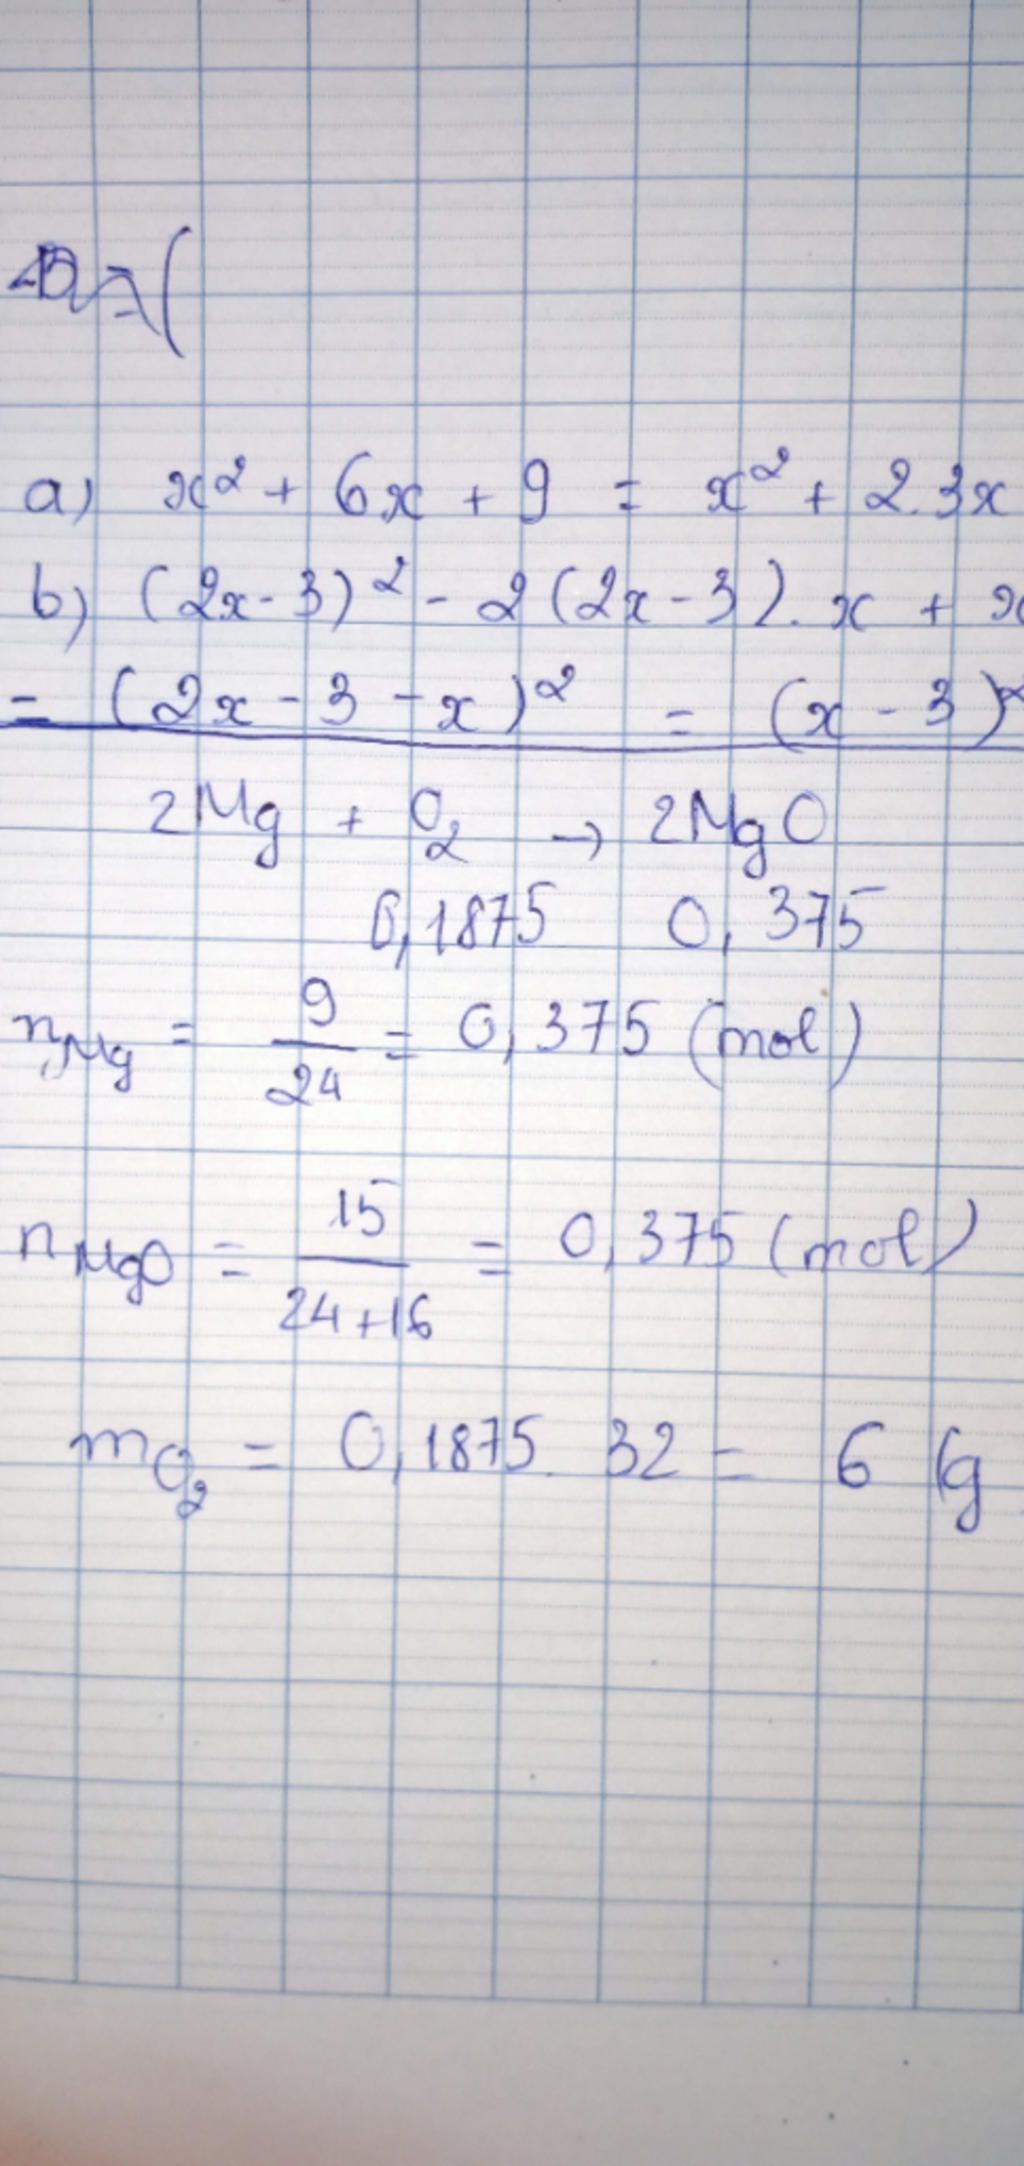 a) x² + 6x + 9 = x² + 2.3x
b) (2x - 3)² - 2(2x - 3). x +
= (2x - 3 - x)² = (x - 3)²
2Mg + O₂ → 2MgO
0,1875 0,375
nMg = 9/24 = 0,375 (mol)
nMgO = 15/24+16 = 0,375 (mol)
mO₂ = 0,1875. 32 = 6 (g